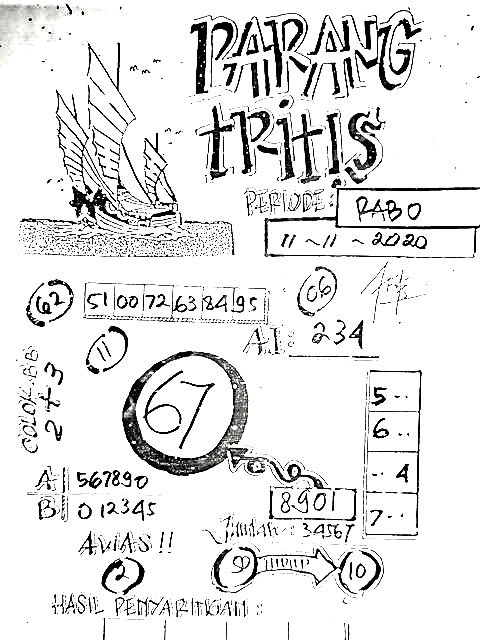 PARANG
TRITIS
PERIODE: RABO
11~11~2020
62
51 00 72 63 84 95
06
A.I: 234
11
COLOK.BB
2+3
67
5··
6··
··4
7··
A 567890
B 012345
8.901
Jumlah: 34567
AWAS!!
2
9
10
HASIL PENYARINGAN: